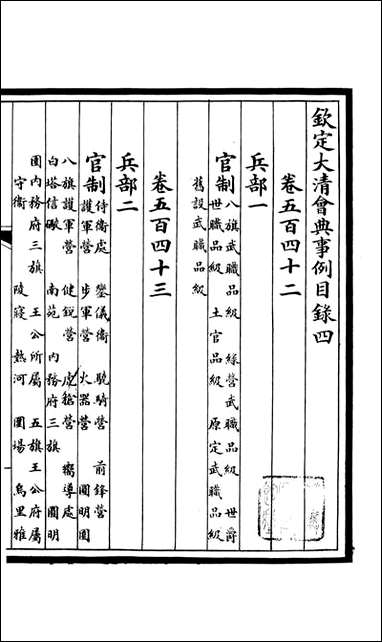 欽定大清會典事例目錄四
卷五百四十二
兵部一
官制 八旗武職品級 綠營武職品級 世爵
世職品級 土官品級 原定武職品級
舊設武職品級
卷五百四十三
兵部二
官制 侍衞處 鑾儀衞 驍騎營 前鋒營
護軍營 步軍營 火器營 圓明園
八旗護軍營 健銳營 虎槍營 嚮導處
白塔信礮 南苑 內務府三旗 圓明
園內務府三旗 王公所屬 五旗王公府屬
守衞 陵寢 熱河 圍場 烏里雅